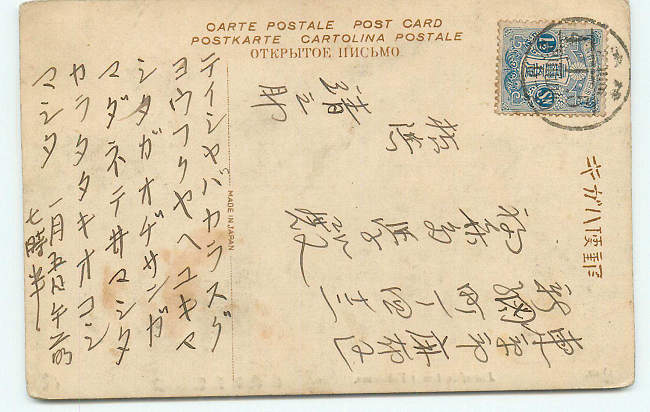 CARTE POSTALE POST CARD
POSTKARTE CARTOLINA POSTALE
ОТКРЫТОЕ ПИСЬМО
キガハ便郵
東京市麻布区
新網町一
テイシヤバカラスグ
ヨウフクヤヘユキマ
シタガオヂサンガ
マダネテ井マシタ
カラタタキオコシ
マシタ 一月五日午前
七時半
MADE IN JAPAN
1½ Sn